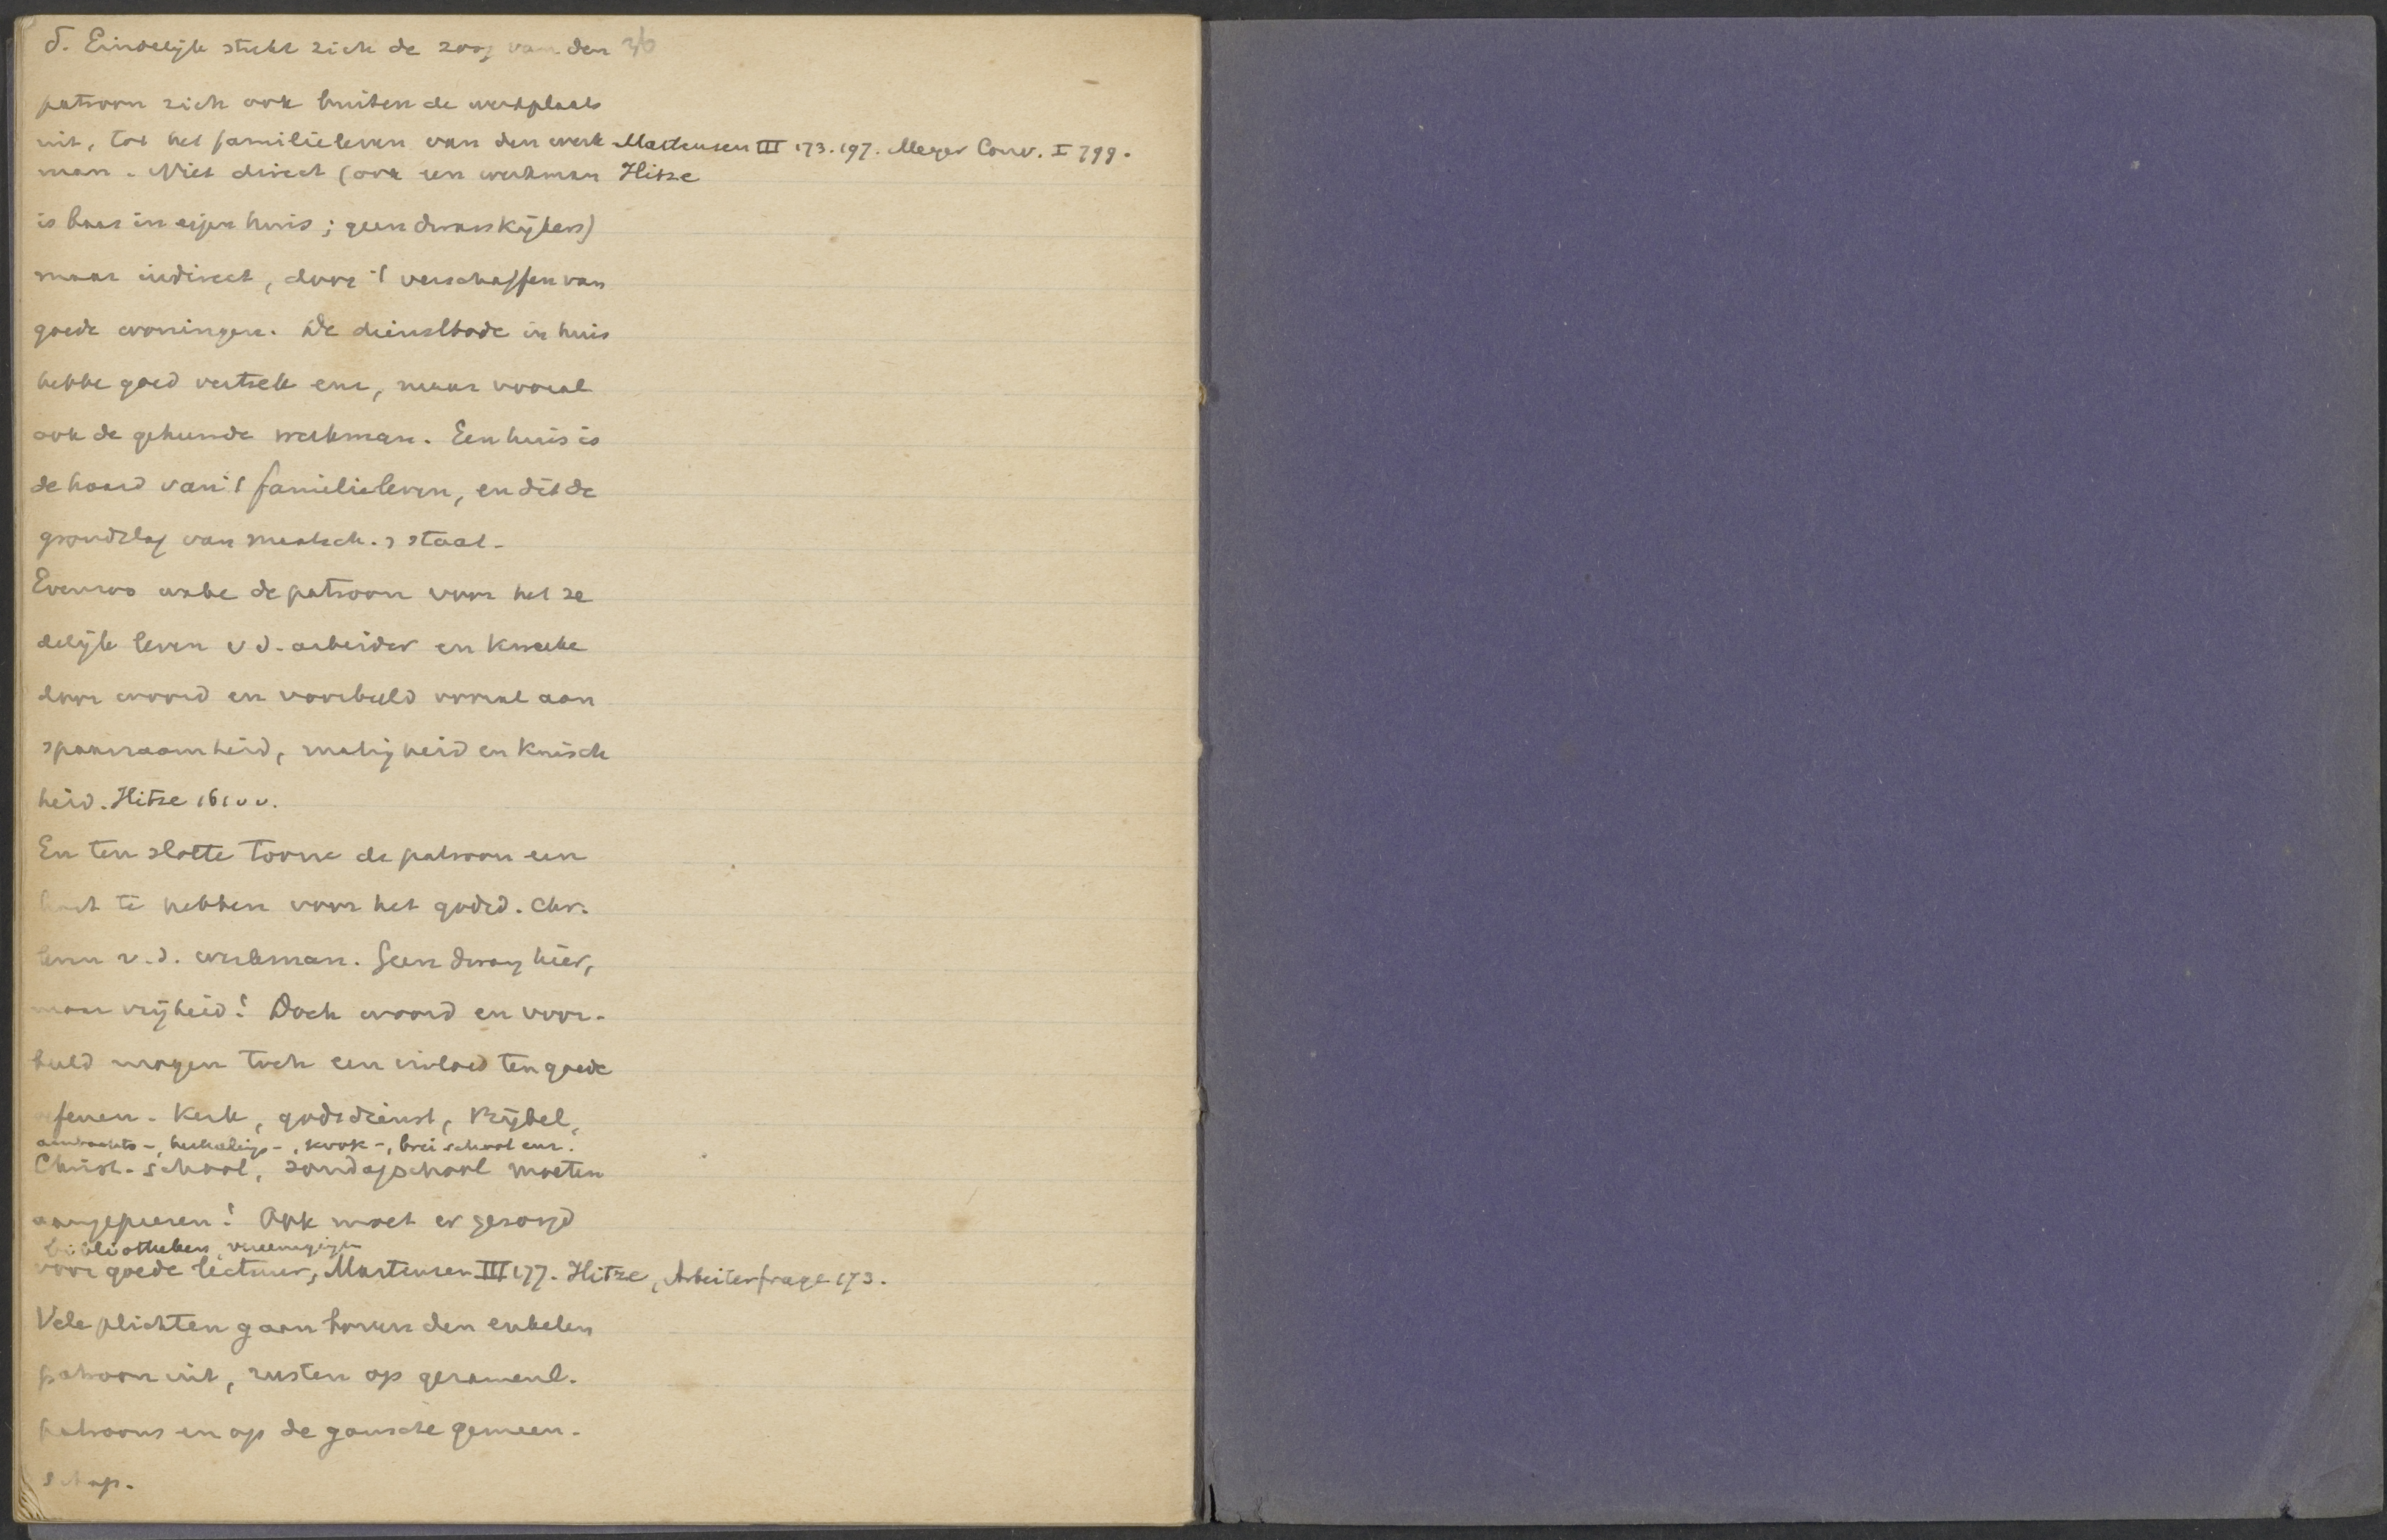 δ. Eindelijk strekt zich de zorg van den 36
patroon zich ook buiten de werkplaats
uit, tot het familieleven van den werk Martensen III 173. 197. Meyer Conv. I 799.
man. Niet direct (ook een werkman Hitze
is baas in eigen huis; geen dwarskijkers)
maar indirect, door 't verschaffen van
goede woningen. De dienstbode in huis
hebbe goed vertrek enz, maar vooral
ook de gehuwde werkman. Een huis is
de haard van 't familieleven, en dit de
grondslag van maatsch. & staat.
Evenzoo wake de patroon voor het ze
delijk leven v d. arbeider en kweeke
door woord en voorbeeld vooral aan
spaarzaamheid, matigheid en kuisch
heid. Hitze 161 vv.
En ten slotte toone de patroon een
hart te hebben voor het godsd. chr.
leven v. d. werkman. Geen dwang hier,
maar vrijheid! Doch woord en voor-
beeld mogen toch een invloed ten goede
oefenen. Kerk, godsdienst, Bijbel,
ambachts-, herhalings-, kook-, breischool enz.
Christ. school, zondagschool moeten
aangeprezen! Ook moet er gezorgd
bibliotheken, vereenigingen
voor goede lectuur, Martensen III 177. Hitze, Arbeiterfrage 173.
Vele plichten gaan boven den enkelen
patroon uit, rusten op gezamenl.
patroons en op de gansche gemeen-
schap.